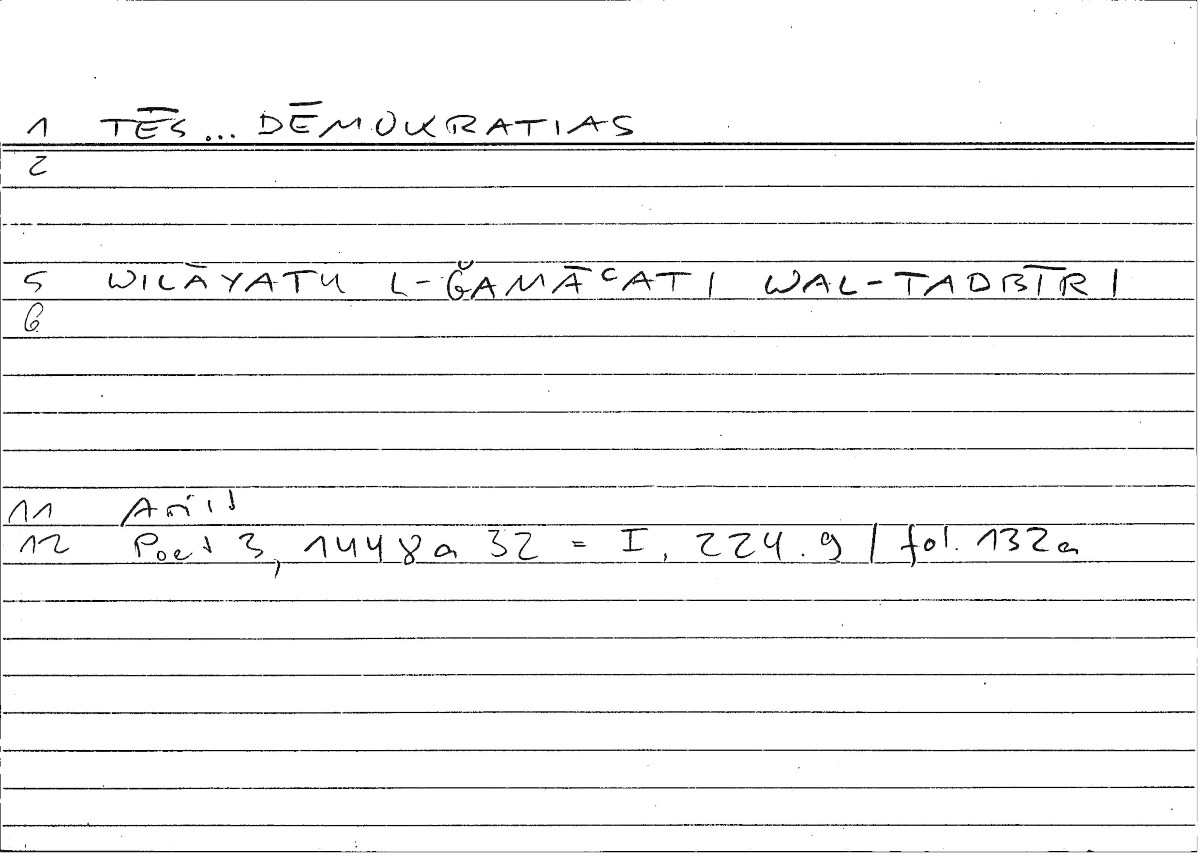 1 TĒS... DĒMOKRATIAS
2
5 WILĀYATU L-ǦAMĀʿATI WAL-TADBĪRI
6
11 Arist
12 Poet 3, 1448a 32 = I, 224.9 / fol. 132a